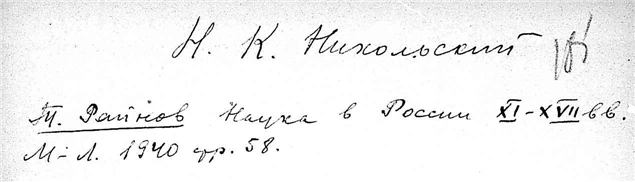 Н. К. Никольский
Т. Райнов Наука в России XI-XVII вв.
М-Л. 1940 стр. 58.